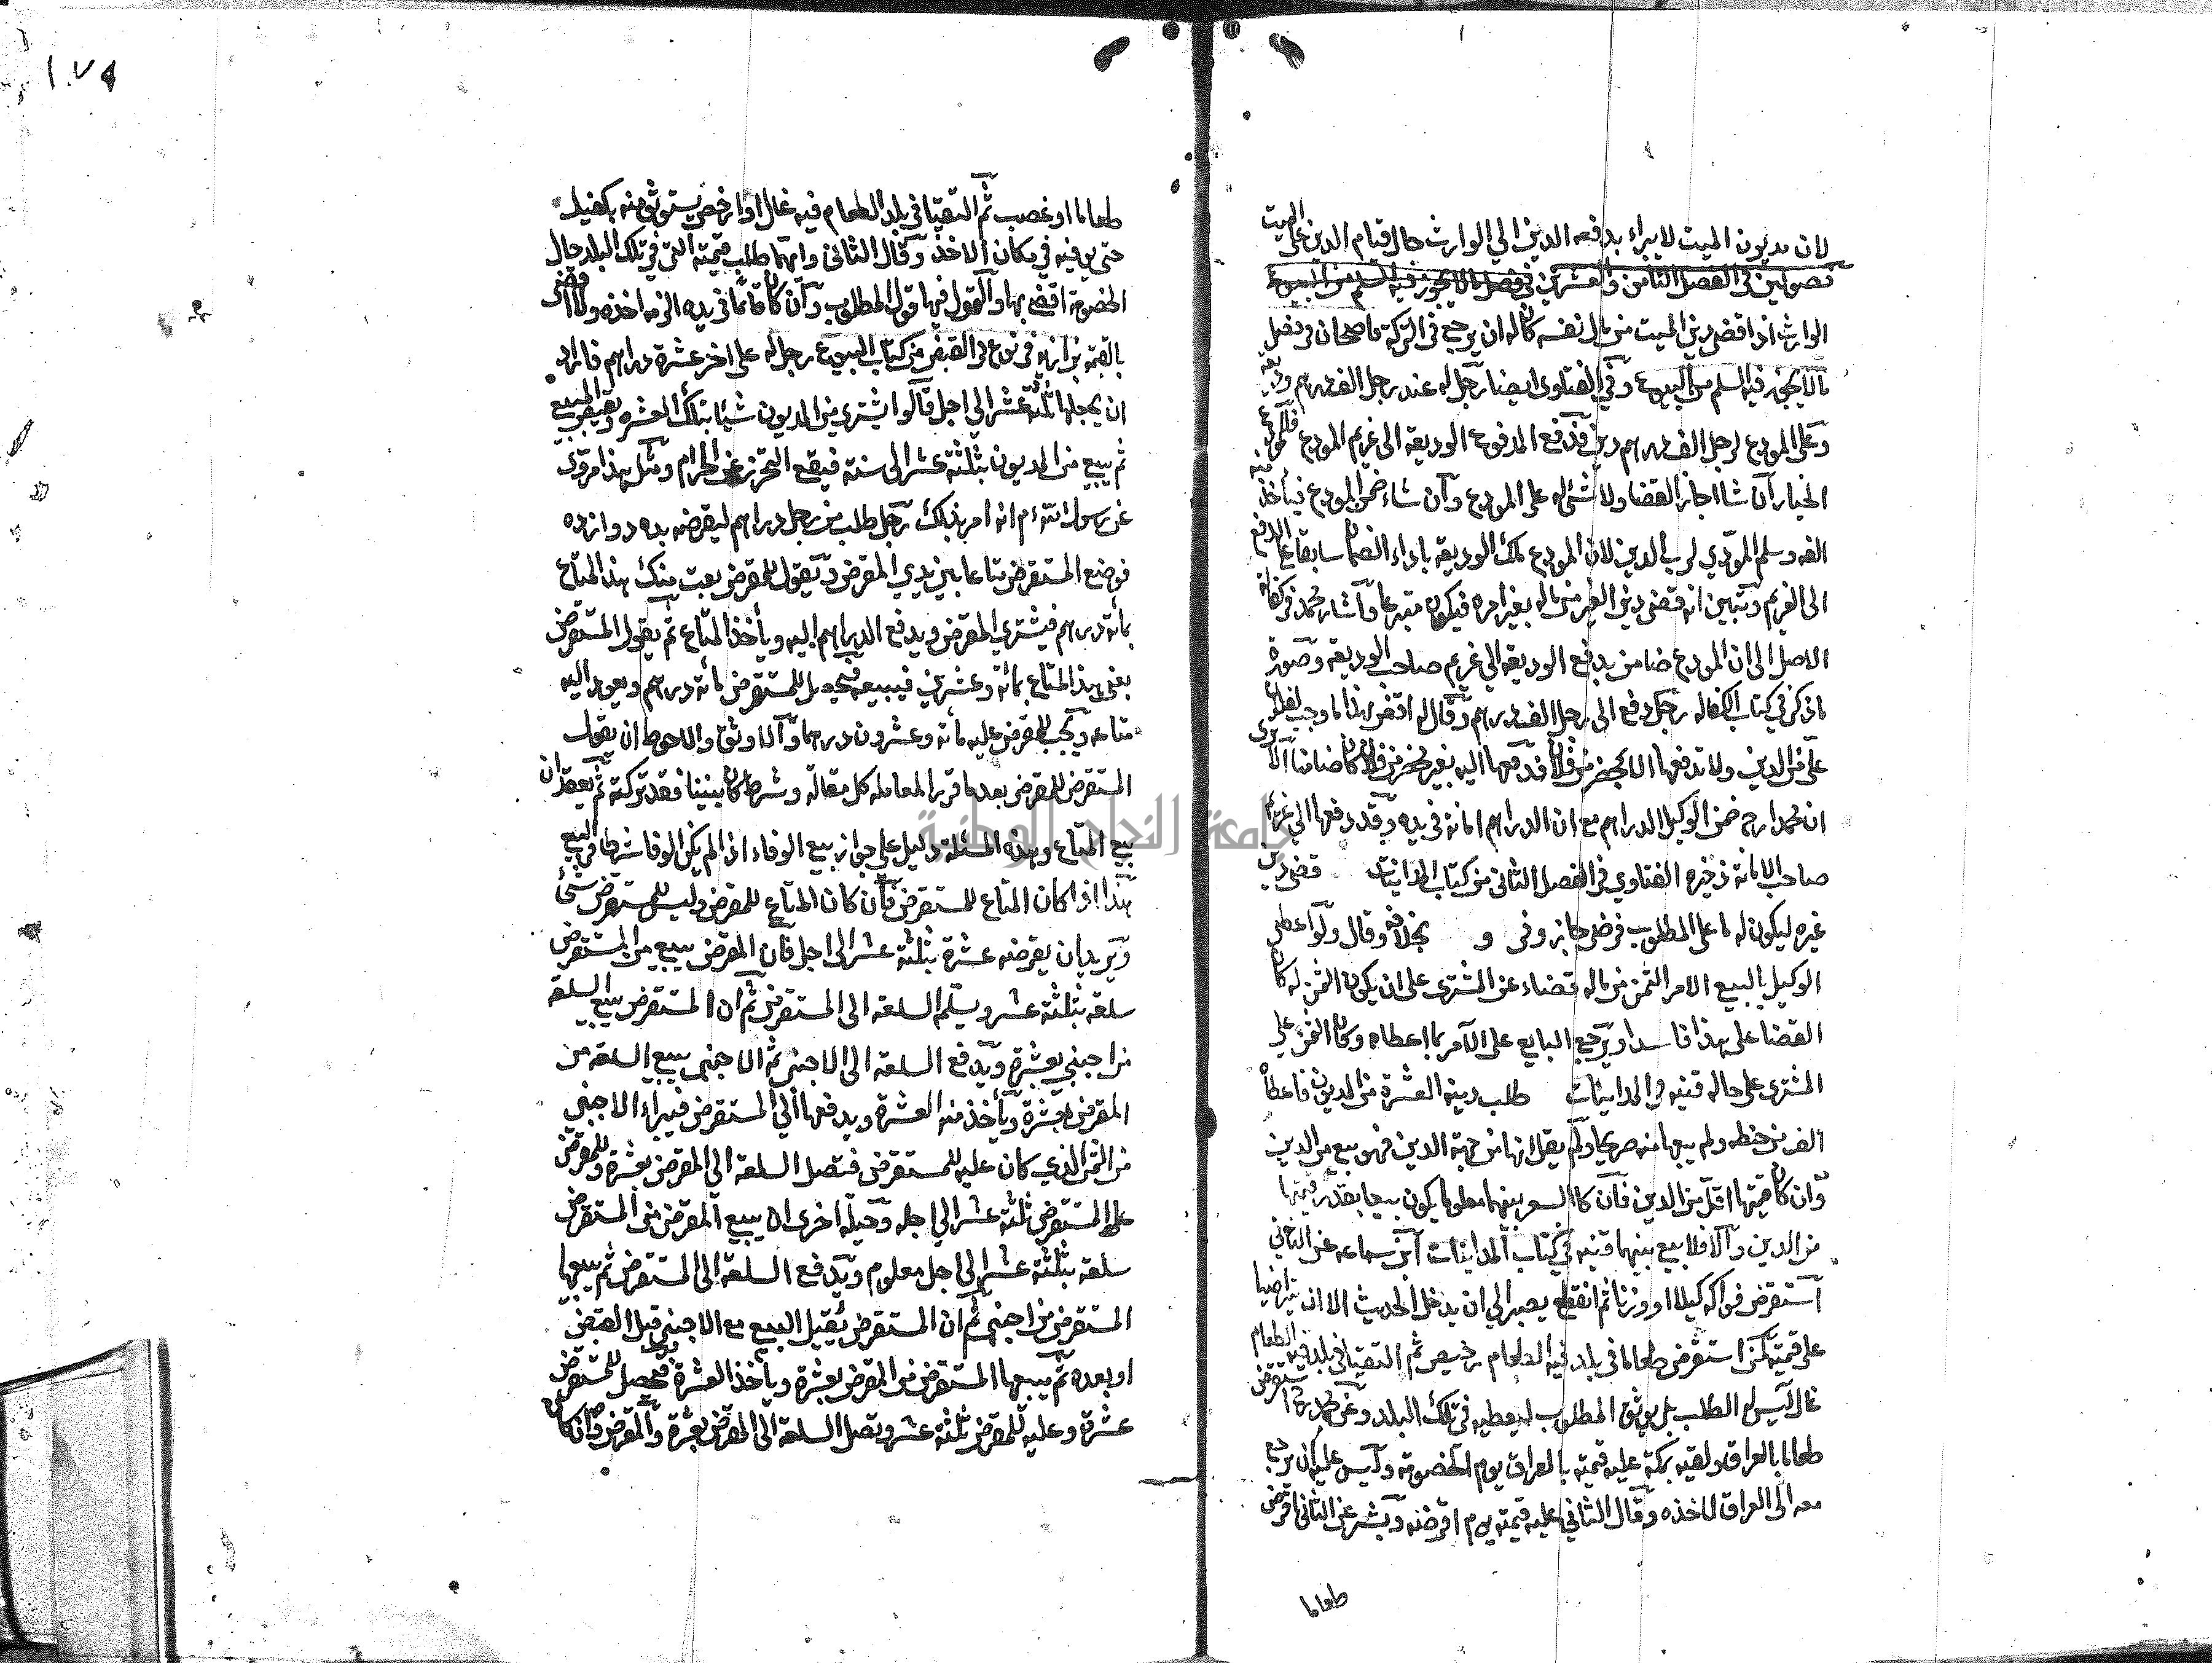 لان مديون الميت لا يبراء بدفعه الدين الي الوارث حال قيام الدين على الميت
فصولين في الفصل الثامن والعشرين في فصل ما لا يجوز فيه السلم من البيوع
الوارث اذا قضى دين الميت من مال نفسه كان له ان يرجع في التركة قاضيخان في فصل
ما لا يجوز فيه السلم من البيوع وفي الفتاوى ايضا رجل له عند رجل الف درهم وديعة
وعلى المودع لرجل الف درهم دين فدفع المدفوع الوديعة الى غريم المودع فللمودع
الخيار ان شا اجاز القضا ولا شئ له على المودع وان شاء ضمن المودع فياخذ منه
الفه وسلم المؤدي لرب الدين لان المودع ملك الوديعة باداء الضمان سابقا على الدفع
الى الغريم وتبين انه قضى دين الغير من ماله بغير امره فيكون متبرعا واشار محمد في كفالة
الاصل الى ان المودع ضامن بدفع الوديعة الي غريم صاحب الوديعة وصورة
ما ذكر في كتاب الكفالة رجل دفع الى رجل الف درهم وقال له اقض بهذا ما وجب لفلان
علي من الدين ولا تدفعها الا بمحضر من فلان فدفعها اليه بغير محضر من فلان كان ضامنا الا يرى
ان محمدا رح ضمن الوكيل الدراهم مع ان الدراهم امانة في يده وقد دفعها الي غريم
صاحب الامانة ذخيرة الفتاوي في الفصل الثاني من كتاب المداينات قضى دين
غيره ليكون له ما على المطلوب فرضي جاز وفى و بخلافه وقال ولو اعطى
الوكيل بالبيع الامر الثمن من ماله قضاء عن المشترى على ان يكون الثمن له كان
القضا على هذا فاسدا ويرجع البايع على الآمر بما اعطاه وكان الثمن علي
المشترى على حاله قنيه في المداينات طلب دينه العشرة من المديون فاعطاه
الف من حنطه ولم يبعها منه صريحا ولم يقل انها من جهة الدين فهو بيع من الدين
وان كان قيمتها اقل من الدين فان كان السعر بينهما معلوما يكون بيعا بقدر قيمتها
من الدين والا فلا بيع بينهما قنيه في كتاب المداينات ابن سماعه عن الثاني
استقرض فواكه كيلا او وزنا ثم انقطع يصبر الي ان يدخل الحديث الا ان يتراضيا
على قيمته كمن استقرض طعاما في بلد فيه الطعام رخيص ثم التقيا في بلد فيه الطعام
غال ليس له الطلب بل يوثق المطلوب ليعطيه في تلك البلد وعن محمد رح استقرض
طعاما بالعراق ولقيه بمكة عليه قيمته بالعراق يوم الخصومة وليس عليه ان يرجع
معه الى العراق لياخذه وقال الثاني عليه قيمته يوم اقرضه وبشر عن الثاني اقرض
طعاما
١٠٧٩
طعاما او غصب ثم التقيا في بلد الطعام فيه غال او ارخص يستوثق منه بكفيل
حتى يوفيه في مكان الاخذ وقال الثاني وايهما طلب قيمته التي في تلك البلد حال
الخصومة اقضي بها والقول فيها قول المطلوب وان كان قائما في يده الزمه اخذه ولا اقضى
بالقيمة بزازيه في نوع في القبض من كتاب البيوع رجل له على اخر عشرة دراهم فاراد
ان يجعلها ثلثة عشر الي اجل قالوا يشترى من المديون شيئا بتلك العشره ويقبض المبيع
ثم يبيع من المديون بثلثة عشر الى سنة فيقع التحرز عن الحرام ومثل هذا مروى
عن رسول الله ءم انه امر بذلك رجل طلب من رجل دراهم ليقرضه بده دوازده
فوضع المستقرض متاعا بين يدي المقرض ويقول للمقرض بعت منك هذا المتاع
بمائة درهم فيشتري المقرض ويدفع الدراهم اليه ويأخذ المتاع ثم يقول المستقرض
بعني هذا المتاع بمائة وعشرين فيبيعه فيحصل للمستقرض مائة درهم ويعود اليه
متاعه ويجب للمقرض عليه مائة وعشرون درهما والاوثق والاحوط ان يقول
المستقرض للمقرض بعد ما قررا المعامله كل مقالة وشرط كان بيننا فقد تركته ثم يعقدان
بيع المتاع وهذه المسئلة دليل على جواز بيع الوفاء اذا لم يكن الوفا شرطا في البيع
هذا اذا كان المتاع للمستقرض فان كان المتاع للمقرض وليس للمستقرض شئ
ويريد ان يقرضه عشرة بثلثة عشر الى اجل فان المقرض يبيع من المستقرض
سلعه بثلثة عشر ويسلم السلعة الى المستقرض ثم ان المستقرض يبيع السلعة
من اجنبي بعشرة ويدفع السلعة الى الاجنبي ثم الاجنبي يبيع السلعة من
المقرض بعشرة ويأخذ منه العشرة ويدفعها الي المستقرض فيبراء الاجنبي
من الثمن الذي كان عليه للمستقرض فتصل السلعة الى المقرض بعشرة وللمقرض
على المستقرض ثلثة عشر الي اجله وحيلة اخرى ان يبيع المقرض من المستقرض
سلعة بثلثة عشر الى اجل معلوم ويدفع السلعة الى المستقرض ثم يبيعها
المستقرض من اجنبي ثم ان المستقرض يقيل البيع مع الاجنبي قبل القبض
او بعده ثم يبيعها المستقرض من المقرض بعشرة ويأخذ العشرة فيحصل للمستقرض
عشرة وعليه للمقرض ثلثة عشر وتصل السلعة الى المقرض بعشرة والمقرض وان كان
جامعة النجاح الوطنية